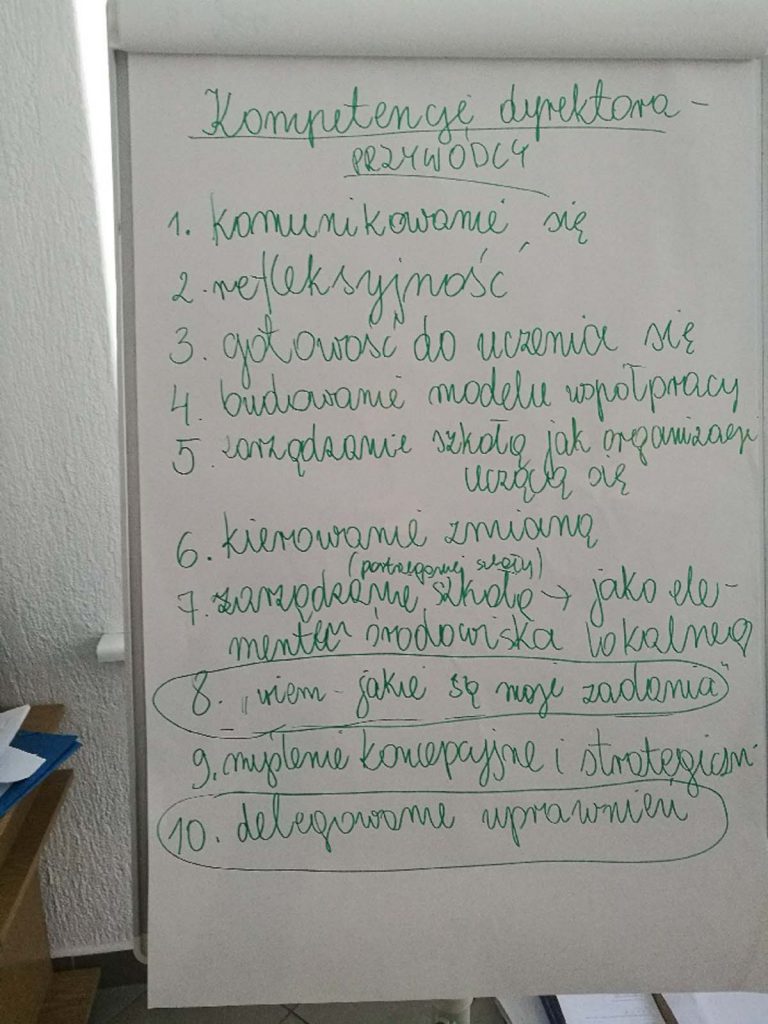 Kompetencje dyrektora -
PRZYWÓDCY
1. komunikowanie się
2. refleksyjność
3. gotowość do uczenia się
4. budowanie modelu współpracy
5. zarządzanie szkołą jak organizacją
uczącą się
6. kierowanie zmianą
(postrzeganej szkoły)
7. zarządzanie szkołą → jako ele-
mentem środowiska lokalneg
8. „wiem - jakie są moje zadania"
9. myślenie koncepcyjne i strategiczn.
10. delegowanie uprawnień